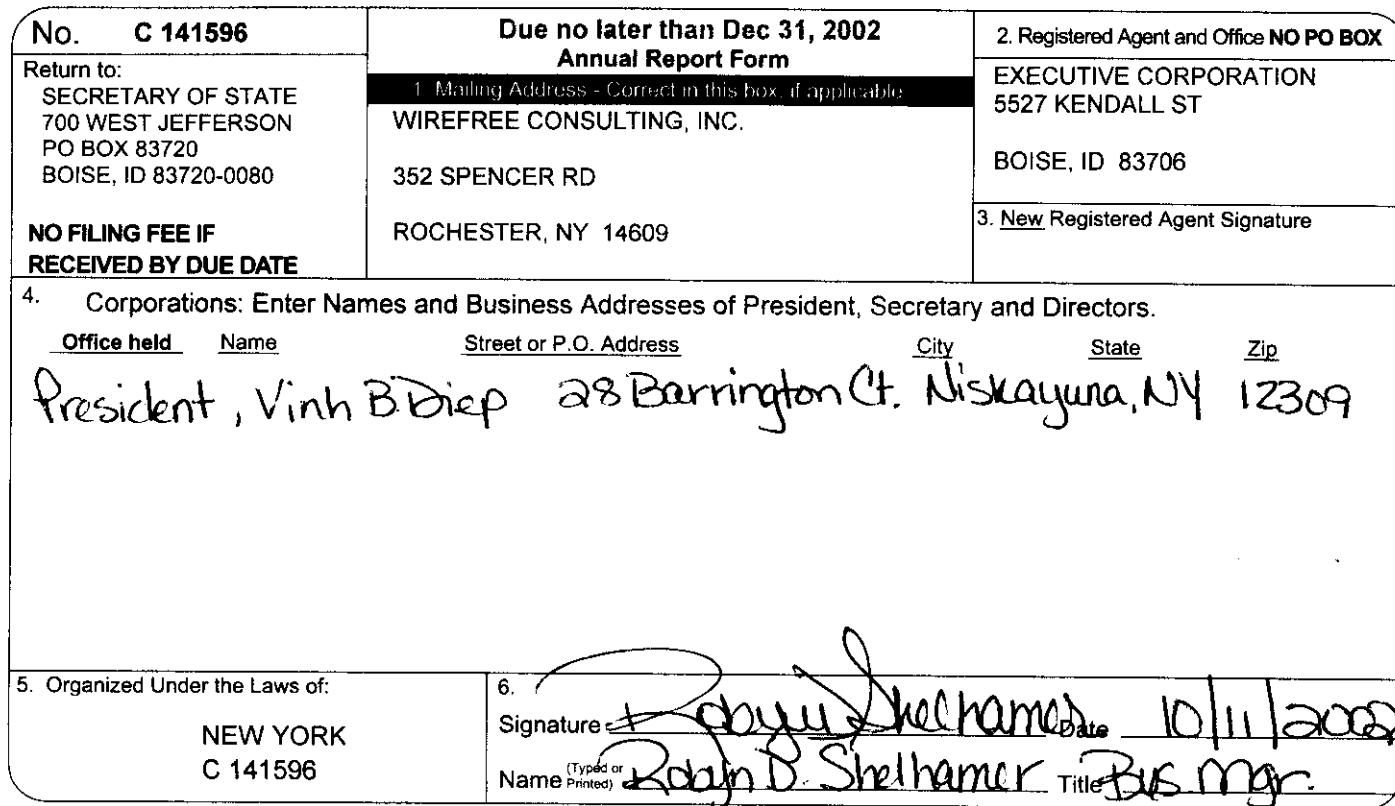 No. C 141596
Return to:
SECRETARY OF STATE
700 WEST JEFFERSON
PO BOX 83720
BOISE, ID 83720-0080
NO FILING FEE IF
RECEIVED BY DUE DATE
Due no later than Dec 31, 2002
Annual Report Form
1 Mailing Address - Correct in this box, if applicable
WIREFREE CONSULTING, INC.
352 SPENCER RD
ROCHESTER, NY 14609
2. Registered Agent and Office NO PO BOX
EXECUTIVE CORPORATION
5527 KENDALL ST
BOISE, ID 83706
3. New Registered Agent Signature
4. Corporations: Enter Names and Business Addresses of President, Secretary and Directors.
Office held Name Street or P.O. Address City State Zip
President, Vinh B. Diep 28 Barrington Ct. Niskayuna, NY 12309
5. Organized Under the Laws of:
NEW YORK
C 141596
6.
Signature Shelhamer Date 10/11/2002
Name (Typed or Printed) D. Shelhamer Title Bus Mgr.